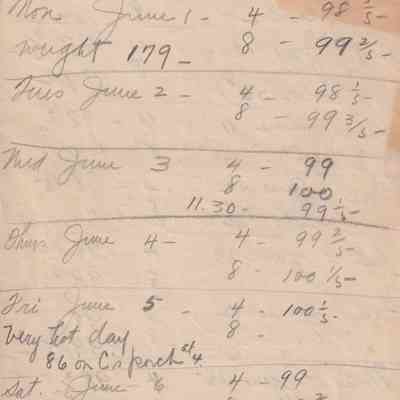 Mon. June 1 - 4 - 98 1/5 -
weight 179 - 8 - 99 2/5 -
Tues June 2 - 4 - 98 1/5 -
8 - 99 3/5 -
Wed June 3 4 - 99
8 100
11.30 - 99 1/5 -
Thurs June 4 - 4 - 99 2/5
8 - 100 1/5 -
Fri June 5 - 4 - 100 1/5 -
Very hot day 8 -
86 on C's porch at 4.
Sat. June 6 4 - 99